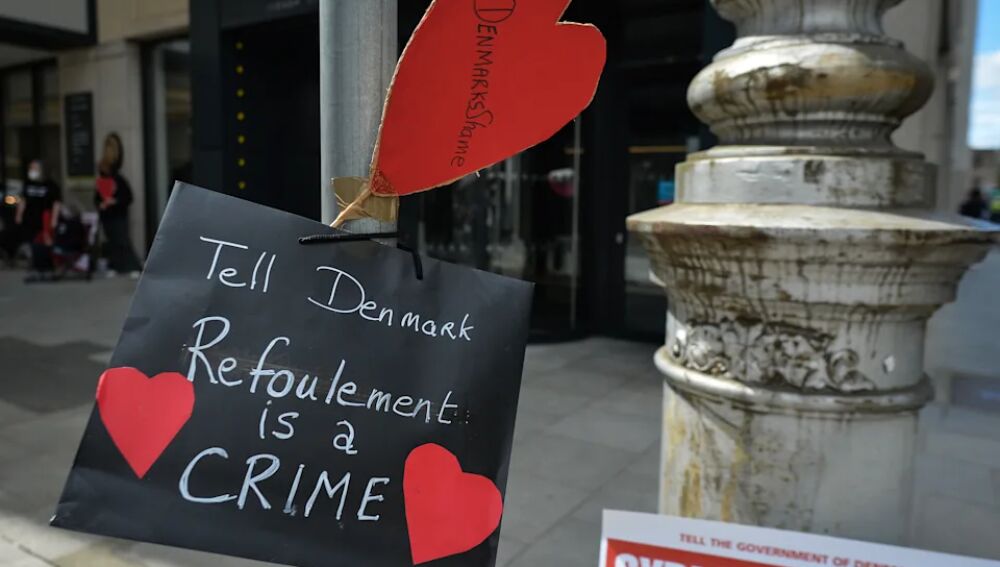 DENMARKSShame
Tell Denmark
Refoulement
is a
CRIME
TELL THE GOVERNMENT OF